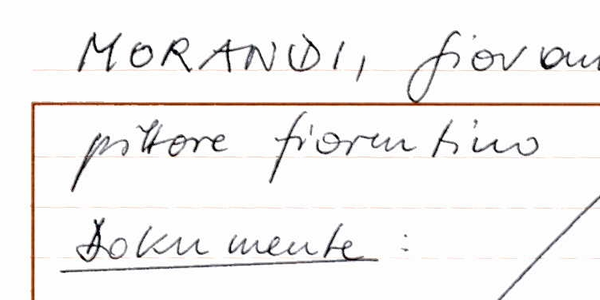 MORANDI, Giovan
pittore fiorentino
Dokumente :